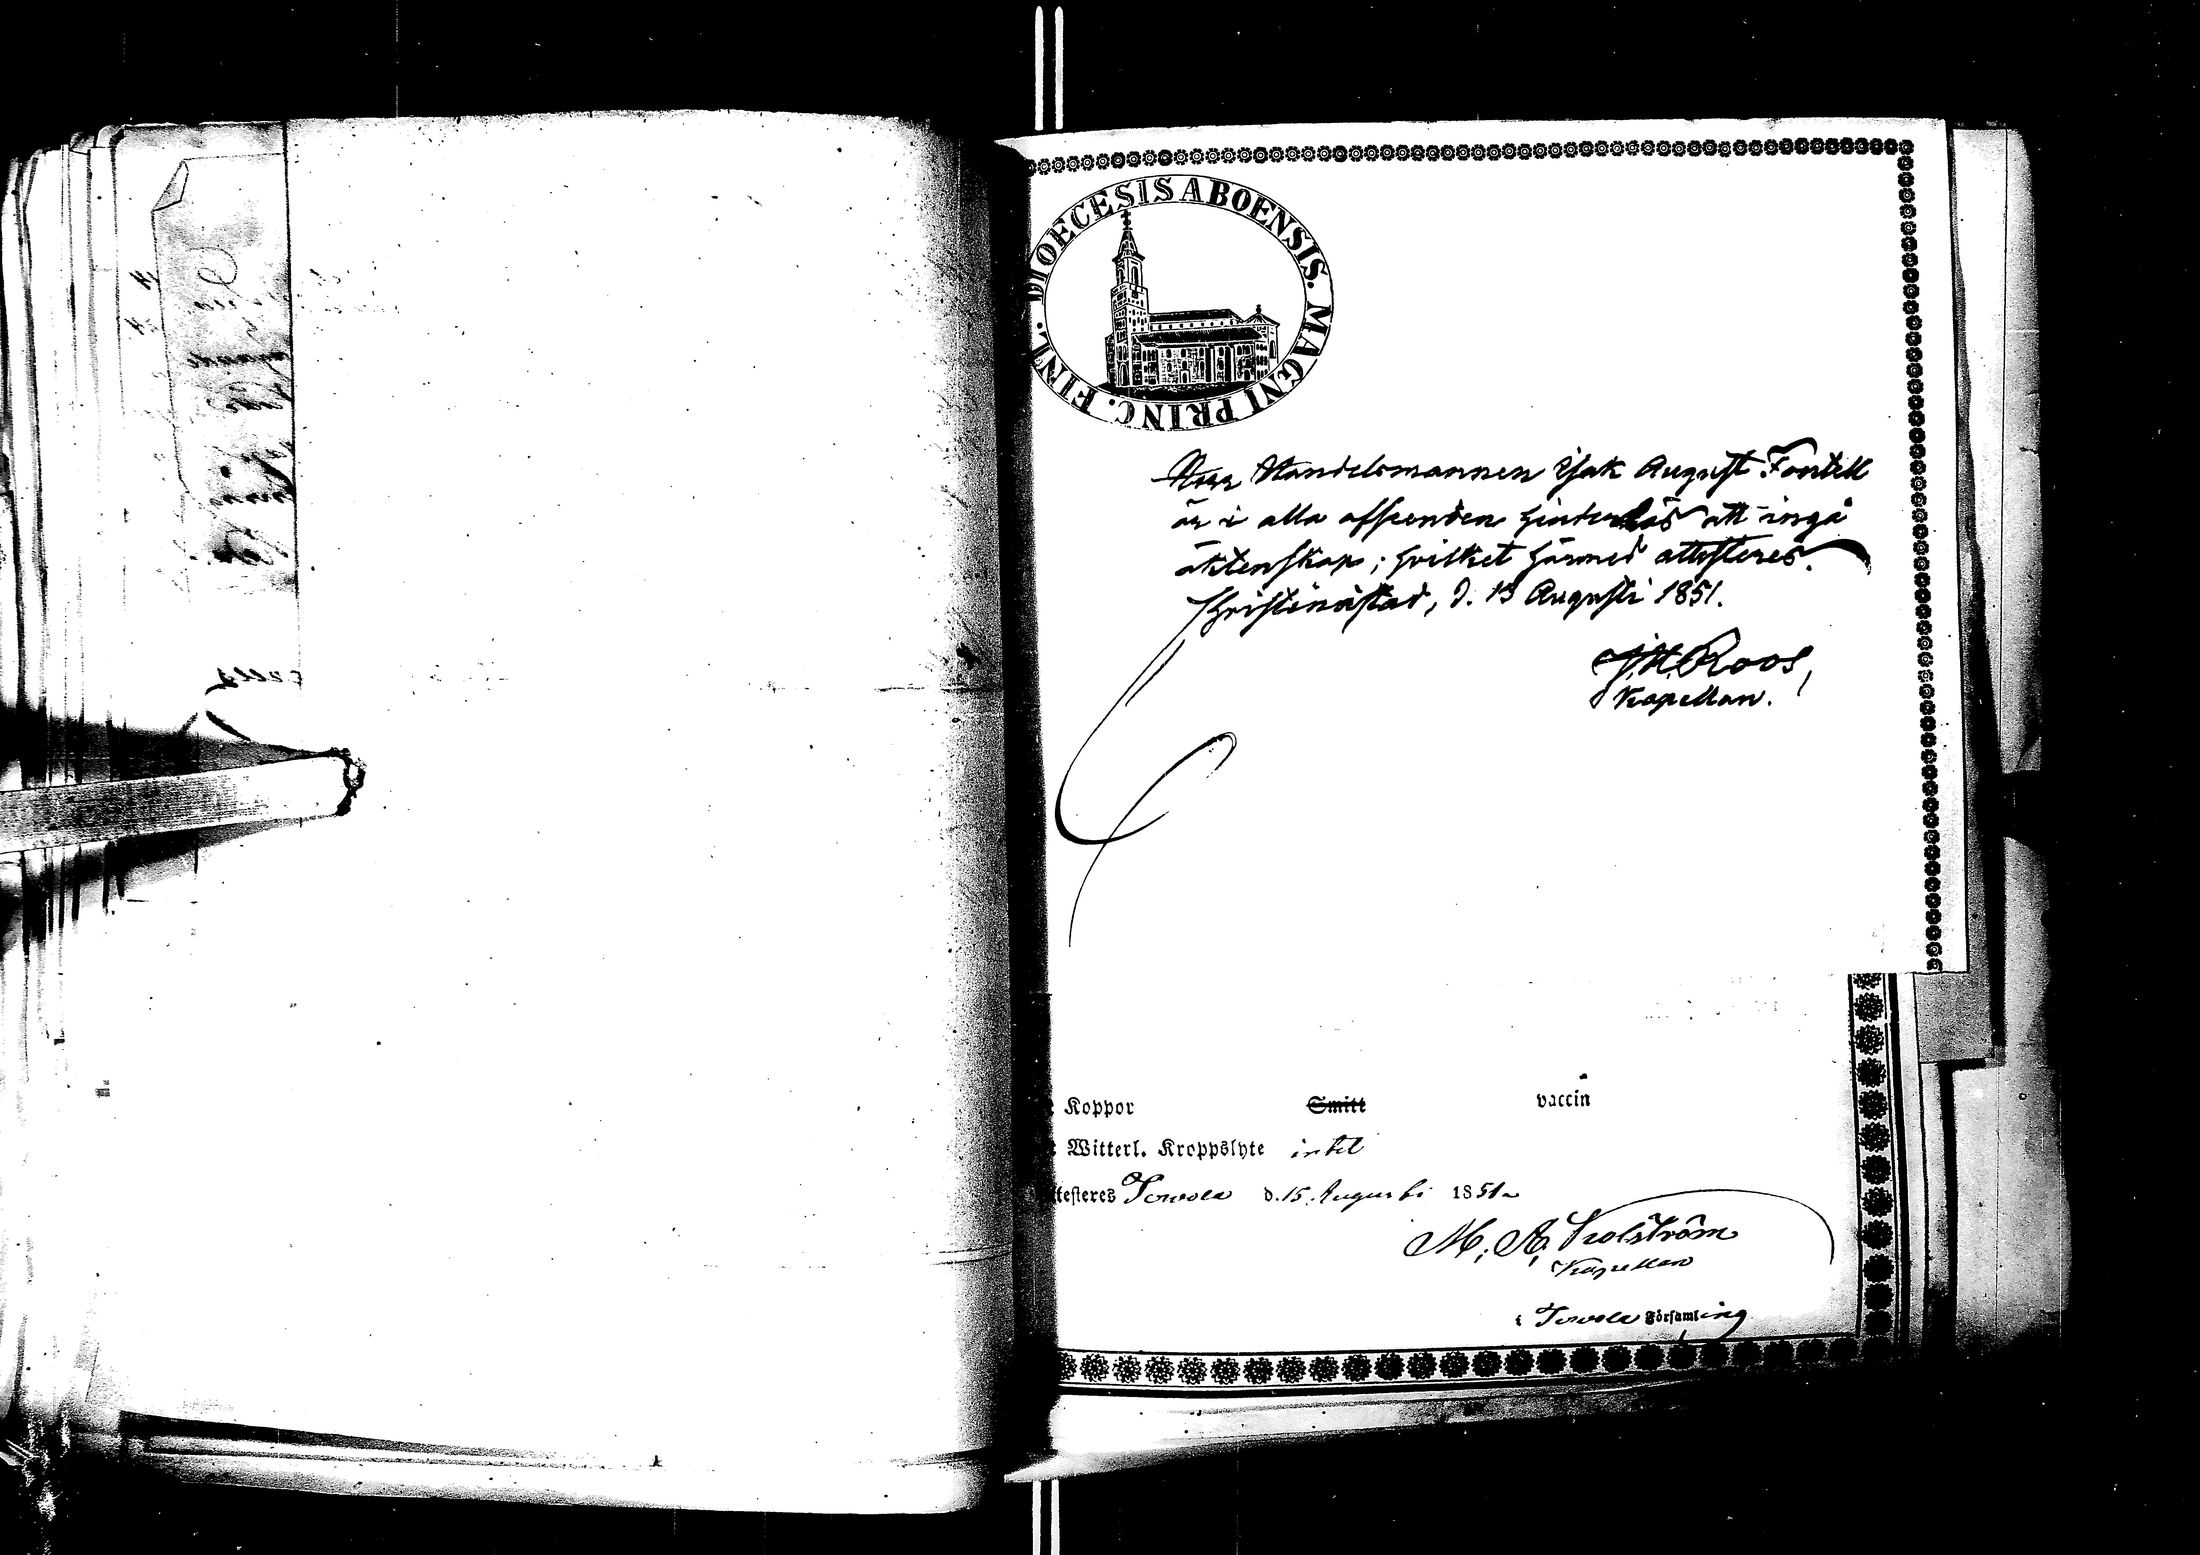 DIOECESIS ABOENSIS. MAGNI PRINC. FINL.
Herr Handelsmannen Isak August Fontell
är i alla afseenden hinderlös att ingå
äktenskap; hvilket härmed attesteres.
Christinæstad, d. 13 Augusti 1851.
J. H. Roos,
Kapellan.
Koppor Smitt vaccin
Witterl. Kroppslyte intet
ttesteres Terwola d. 15 Augusti 1851
M. A.
Kapellan
i Terwola Församling